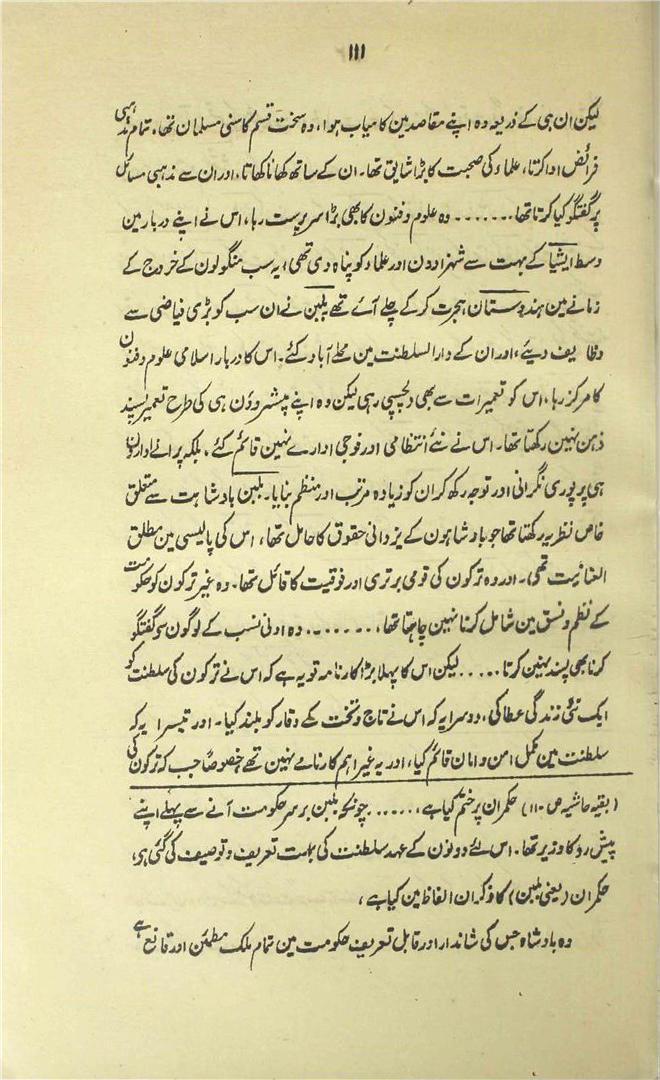 ۱۱۱
لیکن ان ہی کے ذریعہ وہ اپنے مقاصد مین کامیاب ہوا، وہ سخت قسم کا سنی مسلمان تھا، تمام مذہبی
فرائض ادا کرتا، علماء کی صحبت کا بڑا شایق تھا۔ ان کے ساتھ کھانا کھاتا، اور ان سے مذہبی مسائل
پر گفتگو کیا کرتا تھا....... وہ علوم و فنون کا بھی بڑا سرپرست رہا، اس نے اپنے دربار مین
وسط ایشیا کے بہت سے شہزادون اور علماء کو پناہ دی تھی، یہ سب منگولون کے خروج کے
زمانے مین ہندوستان ہجرت کر کے چلے آئے تھے بلبن نے ان سب کو بڑی فیاضی سے
وظایف دیئے، اور ان کے دار السلطنت مین محلے آباد کئے۔ اس کا دربار اسلامی علوم و فنون
کا مرکز رہا، اس کو تعمیرات سے بھی دلچسپی رہی لیکن وہ اپنے پیشرؤون ہی کی طرح تعمیر پسند
ذہن نہین رکھتا تھا۔ اس نے نئے انتظامی اور فوجی ادارے نہین قائم کئے، بلکہ پرانے ادارون
ہی پر پوری نگرانی اور توجہ رکھ کر ان کو زیادہ مرتب اور منظم بنایا۔ بلبن بادشاہت سے متعلق
خاص نظریہ رکھتا تھا جو بادشاہون کے یزدانی حقوق کا حامل تھا، اس کی پالیسی مین مطلق
العنانیت تھی۔ اور وہ ترکون کی قومی برتری اور فوقیت کا قائل تھا۔ وہ غیر ترکون کو حکومت
کے نظم و نسق مین شامل کرنا نہین چاہتا تھا،....... وہ ادنی نسب کے لوگون سے گفتگو
کرنا بھی پسند نہین کرتا..... لیکن اس کا پہلا بڑا کارنامہ تو یہ ہے کہ اس نے ترکون کی سلطنت کو
ایک نئی زندگی عطا کی، دوسرا یہ کہ اس نے تاج و تخت کے وقار کو بلند کیا۔ اور تیسرا یہ کہ
سلطنت مین مکمل امن و امان قائم کیا، اور یہ غیر اہم کارنامے نہین تھے، خصوصاً جب کہ ترکون کی
(بقیہ حاشیہ ص ۱۱۰) حکمران پر ختم کیا ہے،...... چونکہ بلبن بر سر حکومت آنے سے پہلے اپنے
پیش رو کا وزیر تھا۔ اس لئے دونون کے عہد سلطنت کی بہت تعریف و توصیف کی گئی ہی،
حکمران (یعنی بلبن) کا ذکر ان الفاظ مین کیا ہے،
وہ بادشاہ جس کی شاندار اور قابل تعریف حکومت مین تمام ملک مطمئن اور قانع ہے